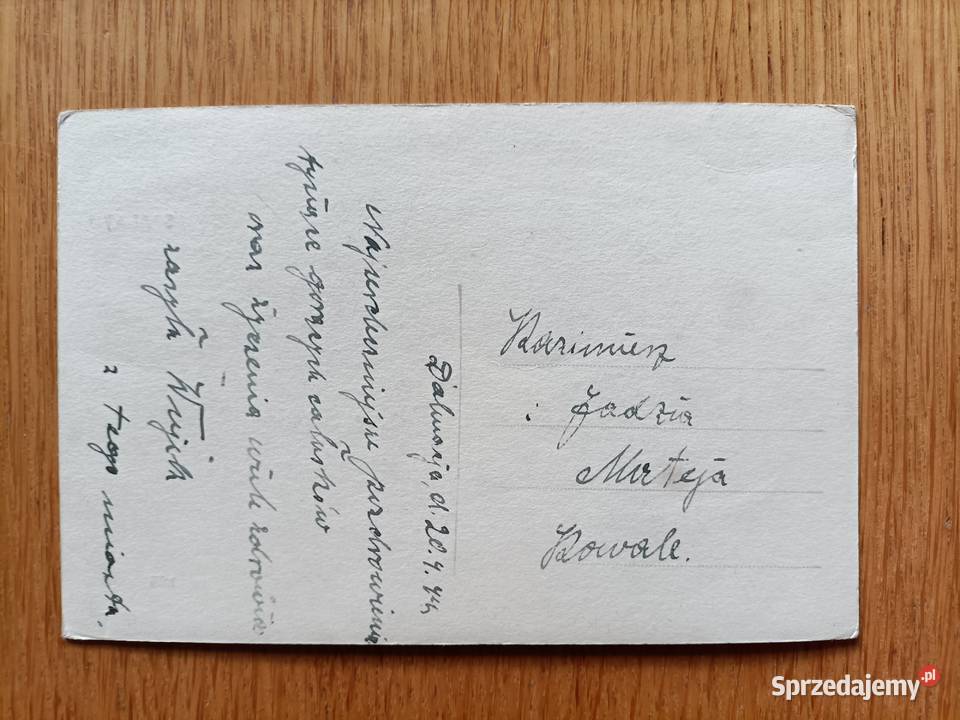 Dalmacja, d. 20.9.44,
Najserdeczniejsze pozdrowienia
tysiące gorących całusków
oraz życzenia wiele zdrowia
zasyła Wujek
z tego miasta.
Kazimierz
i Jadzia
Mateja
Kowale.
Sprzedajemy.pl